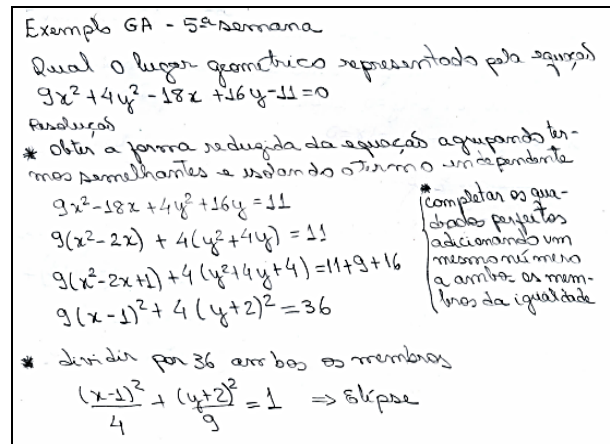 Exemplo GA - 5ª semana
Qual o lugar geométrico representado pela equação
9x² + 4y² - 18x + 16y - 11 = 0
Resolução
* Obter a forma reduzida da equação agrupando ter-
mos semelhantes e isolando o termo independente
9x² - 18x + 4y² + 16y = 11
9(x² - 2x) + 4(y² + 4y) = 11
9(x² - 2x + 1) + 4(y² + 4y + 4) = 11 + 9 + 16
9(x - 1)² + 4(y + 2)² = 36
* completar os qua-
drados perfeitos
adicionando um
mesmo número
a ambos os mem-
bros da igualdade
* dividir por 36 ambos os membros
(x-1)²/4 + (y+2)²/9 = 1 ⇒ Elipse